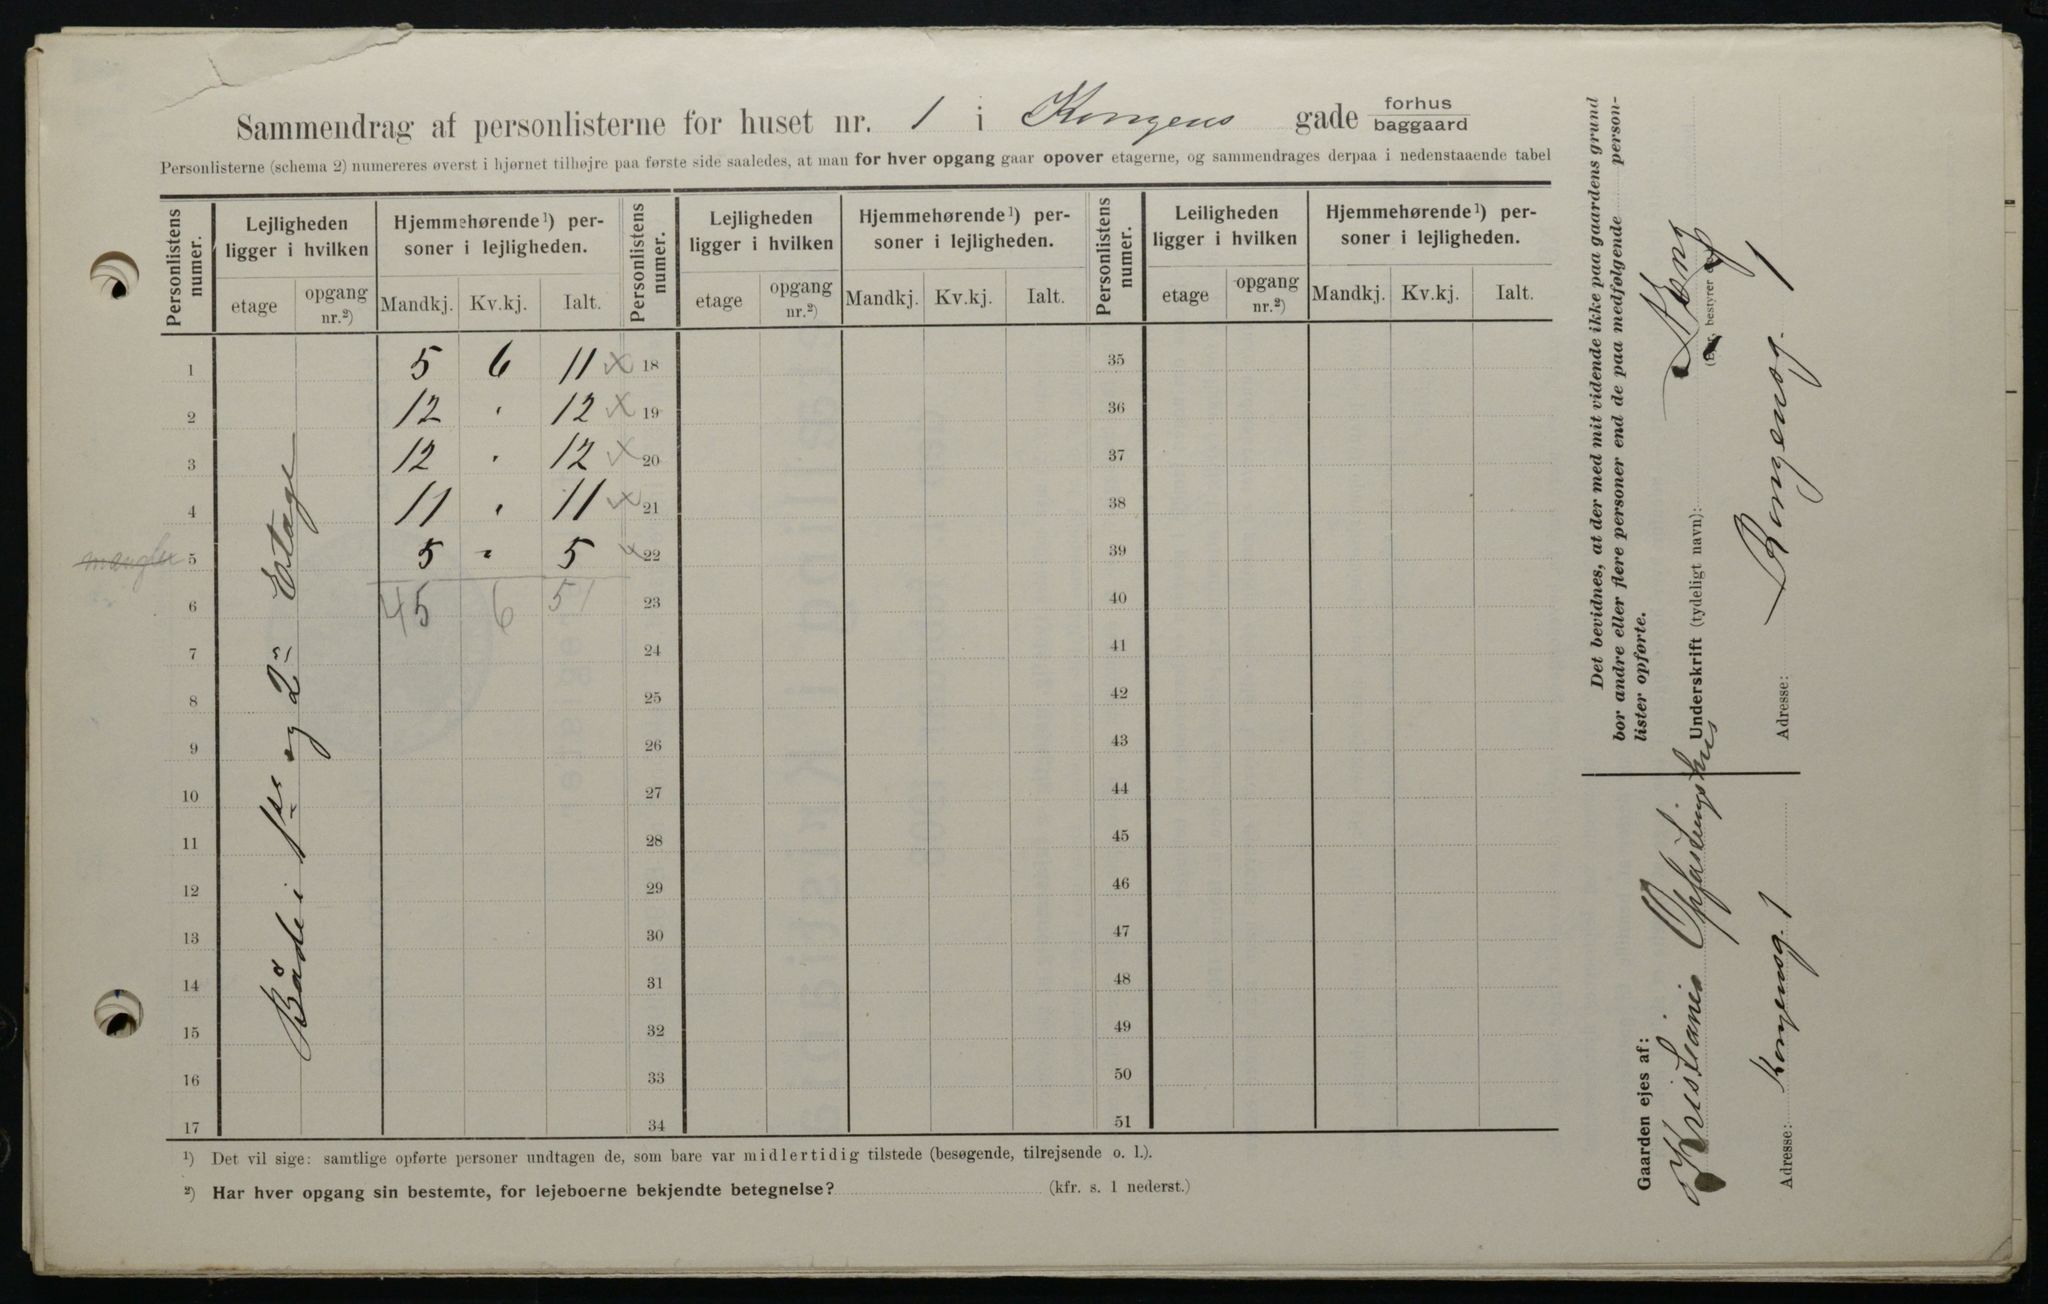 Sammendrag af personlisterne for huset nr. 1 i Kongens gade forhus baggaard
Personlisterne (schema 2) numereres øverst i hjørnet tilhøjre paa første side saaledes, at man for hver opgang gaar opover etagerne, og sammendrages derpaa i nedenstaaende tabel
Personlistens numer. Lejligheden ligger i hvilken Hjemmehørende¹) personer i lejligheden. Personlistens numer. Lejligheden ligger i hvilken Hjemmehørende¹) personer i lejligheden. Personlistens numer. Leiligheden ligger i hvilken Hjemmehørende¹) personer i lejligheden.
etage opgang nr.²) Mandkj. Kv.kj. Ialt. etage opgang nr.²) Mandkj. Kv.kj. Ialt. etage opgang nr.²) Mandkj. Kv.kj. Ialt.
1 5 6 11 x 18 35
2 12 " 12 x 19 36
3 12 " 12 x 20 37
4 11 " 11 x 21 38
mangler 5 5 " 5 x 22 39
6 45 6 51 23 40
7 24 41
8 25 42
9 26 43
10 27 44
11 28 45
12 29 46
13 30 47
14 31 48
15 32 49
16 33 50
17 34 51
Både i 1ste og 2n Etage
¹) Det vil sige: samtlige opførte personer undtagen de, som bare var midlertidig tilstede (besøgende, tilrejsende o. l.).
²) Har hver opgang sin bestemte, for lejeboerne bekjendte betegnelse? (kfr. s. 1 nederst.)
Gaarden ejes af:
Kristiania Opfostringshus
Adresse: Kongensg. 1
Det bevidnes, at der med mit vidende ikke paa gaardens grund
bor andre eller flere personer end de paa medfølgende person-
lister opførte.
Underskrift (tydeligt navn):
Adresse: Kongensg. 1